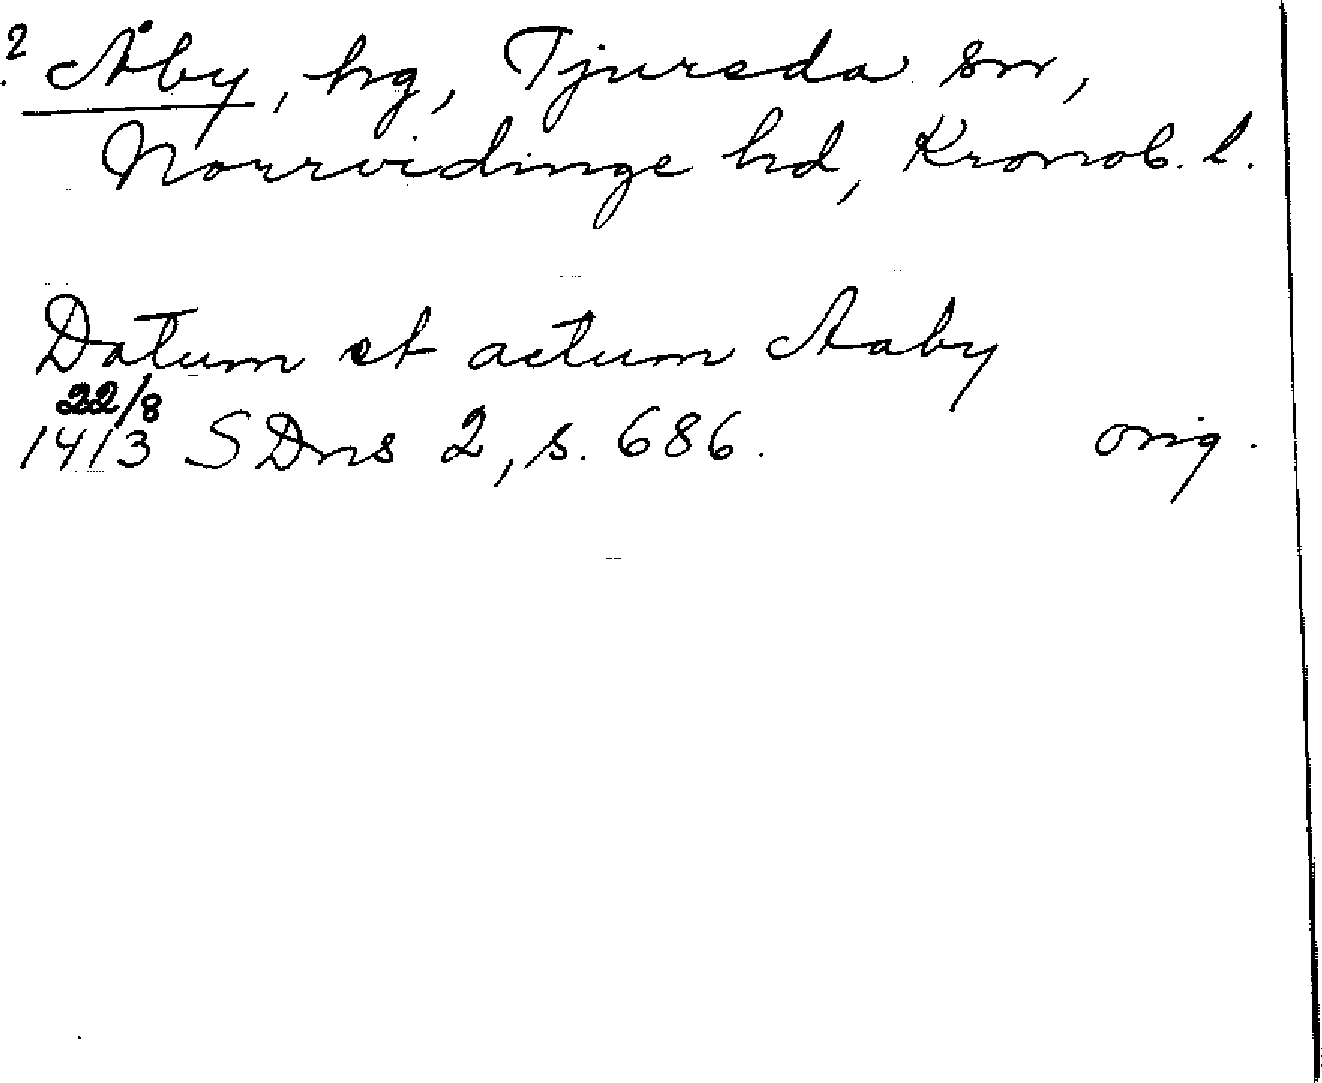 ? Åby, hg, Tjureda sn,
Norrvidinge hd, Kronob. l.
Datum et actum Aaby
22/8
1413 SDns 2, s. 686. orig.